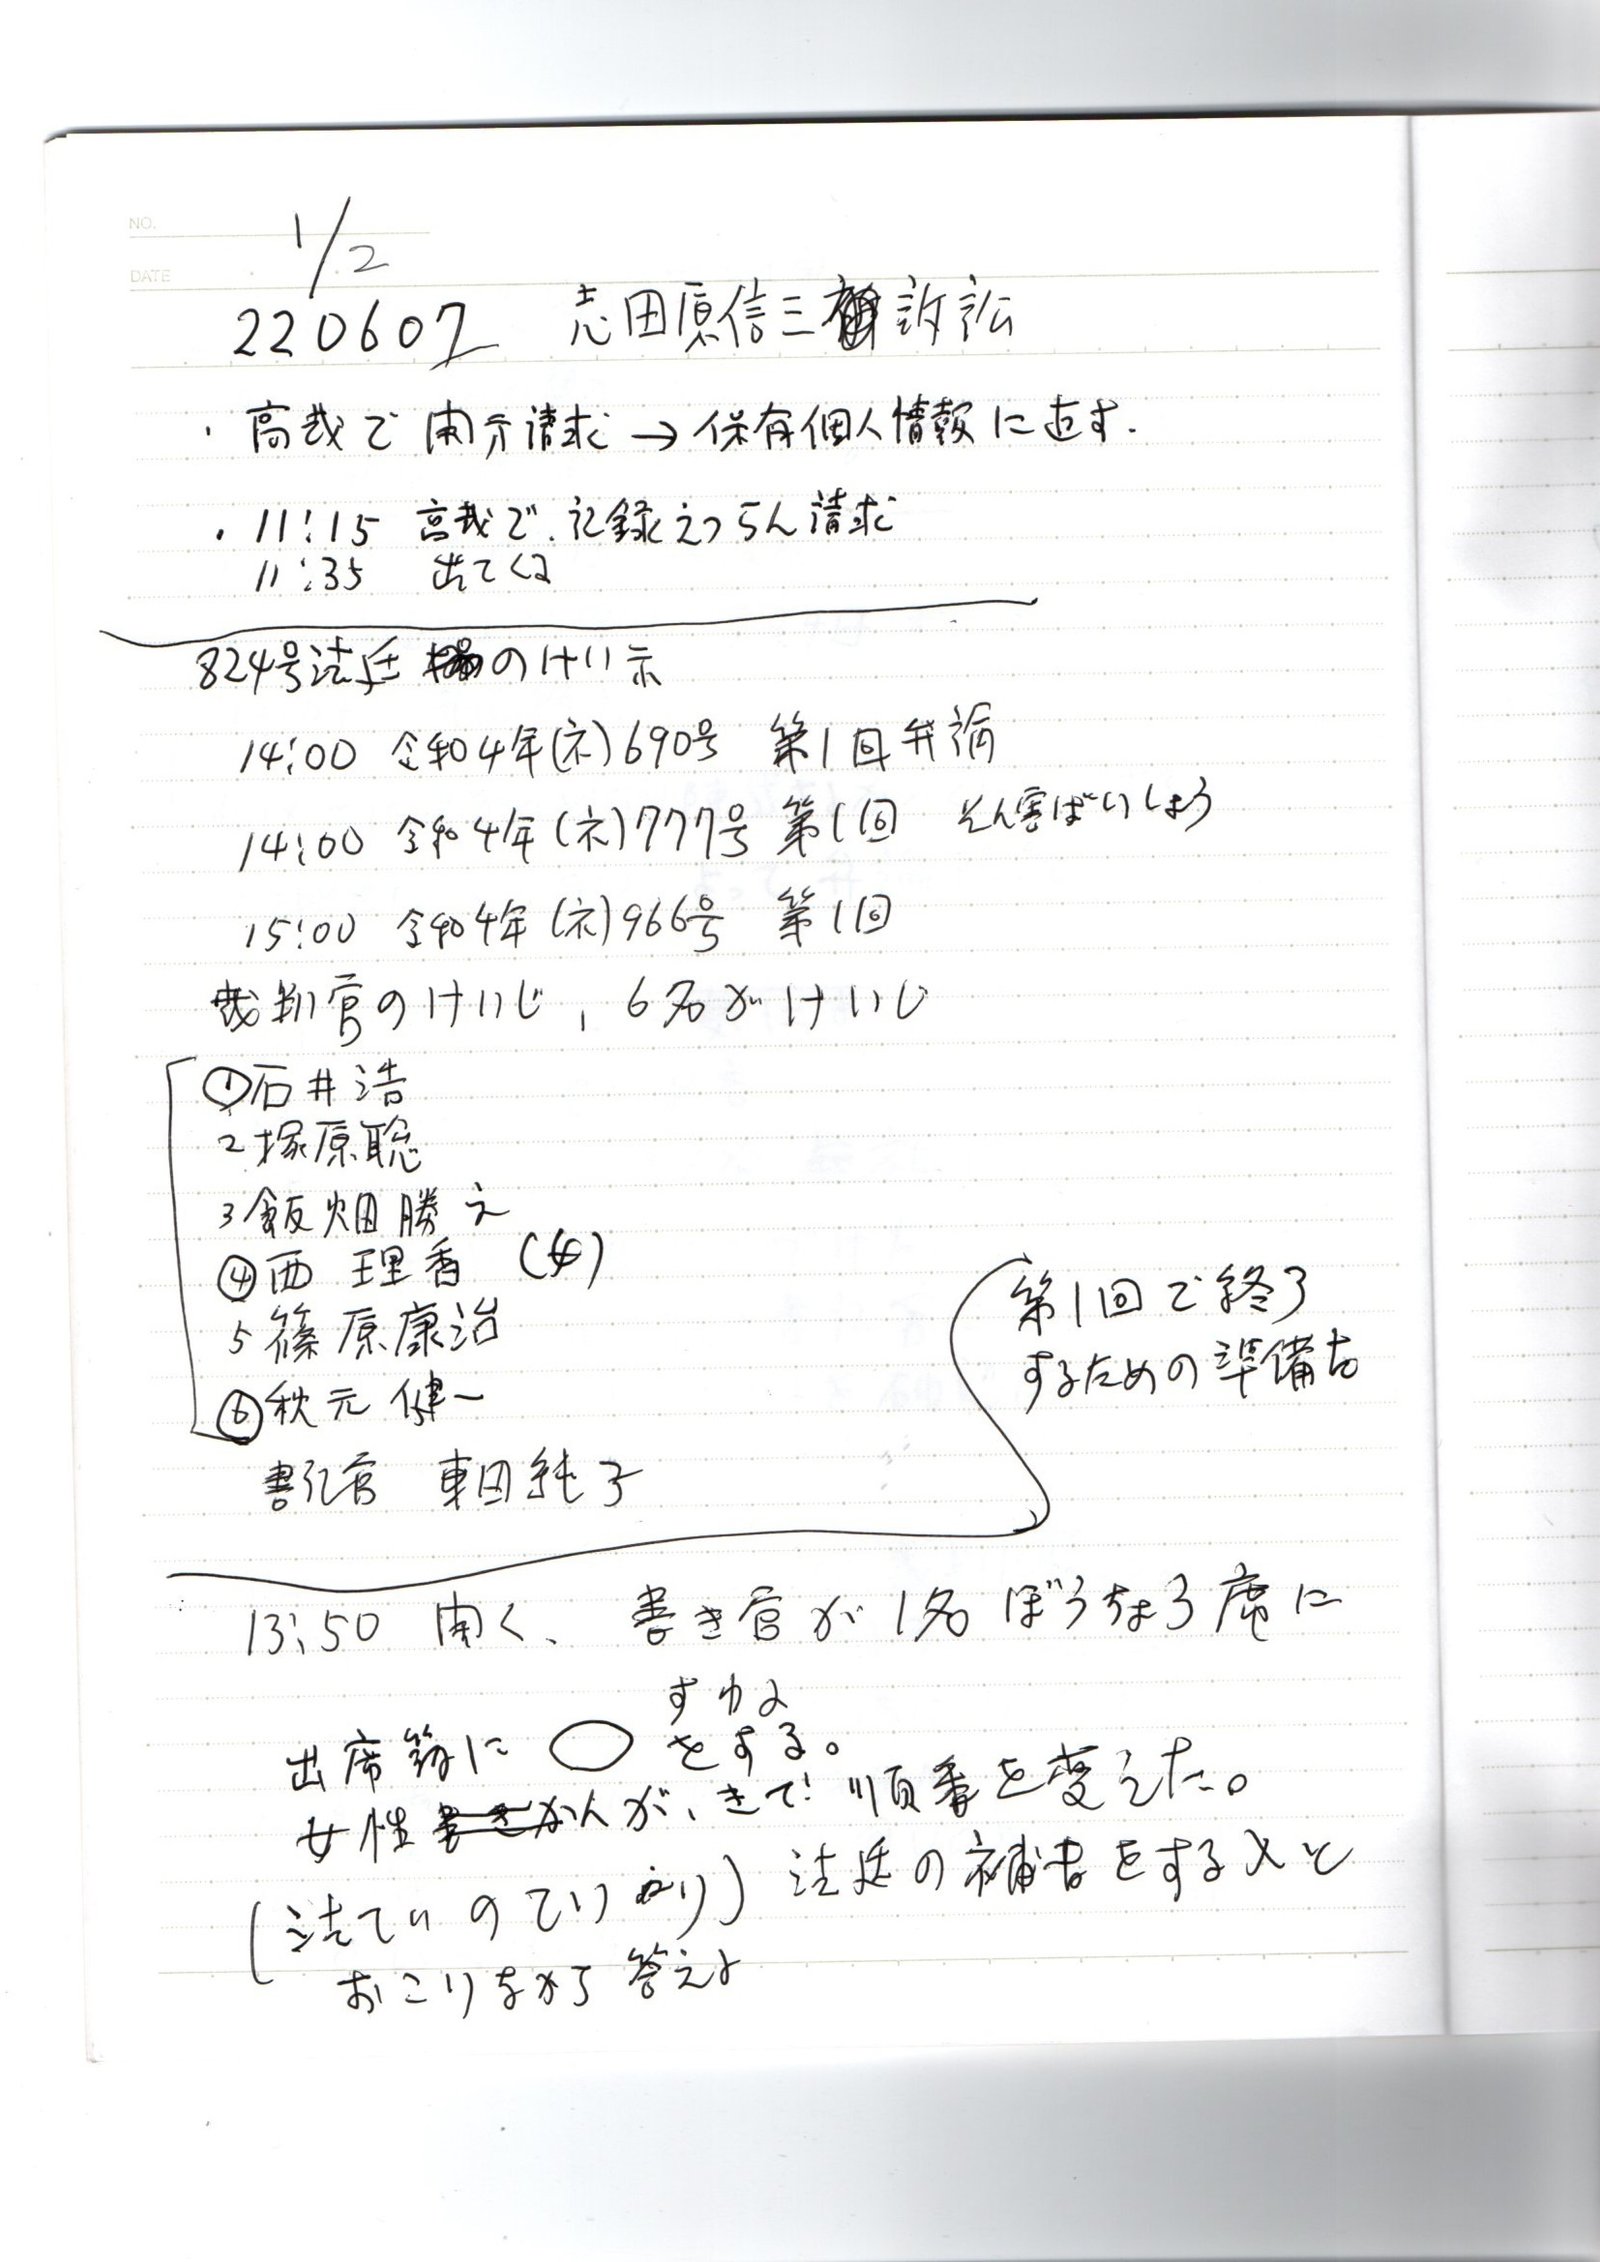 NO.
DATE
1/2
220607 志田原信三 訴訟
・高裁で開示請求→保有個人情報に直す.
・11:15 高裁で、記録えつらん請求
11:35 出てくる
824号法廷 のけい示
14:00 令和4年(ネ)690号 第1回弁論
14:00 令和4年(ネ)777号 第1回 そん害ばいしょう
15:00 令和4年(ネ)966号 第1回
裁判官のけいじ, 6名がけいじ
①石井浩
2塚原聡
3飯畑勝之
④西 理香 (女)
5篠原康治
⑥秋元健一
書記官 東田純子
第1回で終了
するための準備な
13:50 開く、書き官が1名ぼうちょう席に
すわる
出席簿に ◯ をする。
女性 が、きて! 順番を変えた。
(法ていのてい り) 法廷の補書をする人と
おこりながら答える